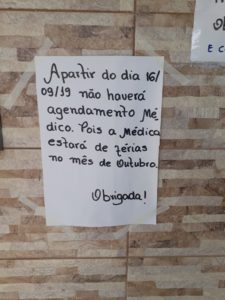 Apartir do dia 16/
09/19 não haverá
agendamento Mé-
dico. Pois a Médica
estará de férias
no mês de Outubro.
Obrigada!